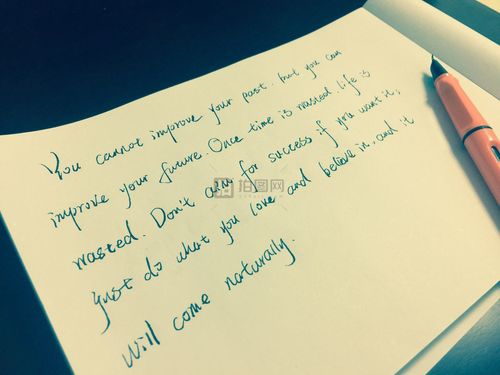 You cannot improve your past. but you can
improve your future. Once time is wasted. life is
wasted. Don't aim for success if you want it,
just do what you love and believe in. and it
will come naturally.
拍图网